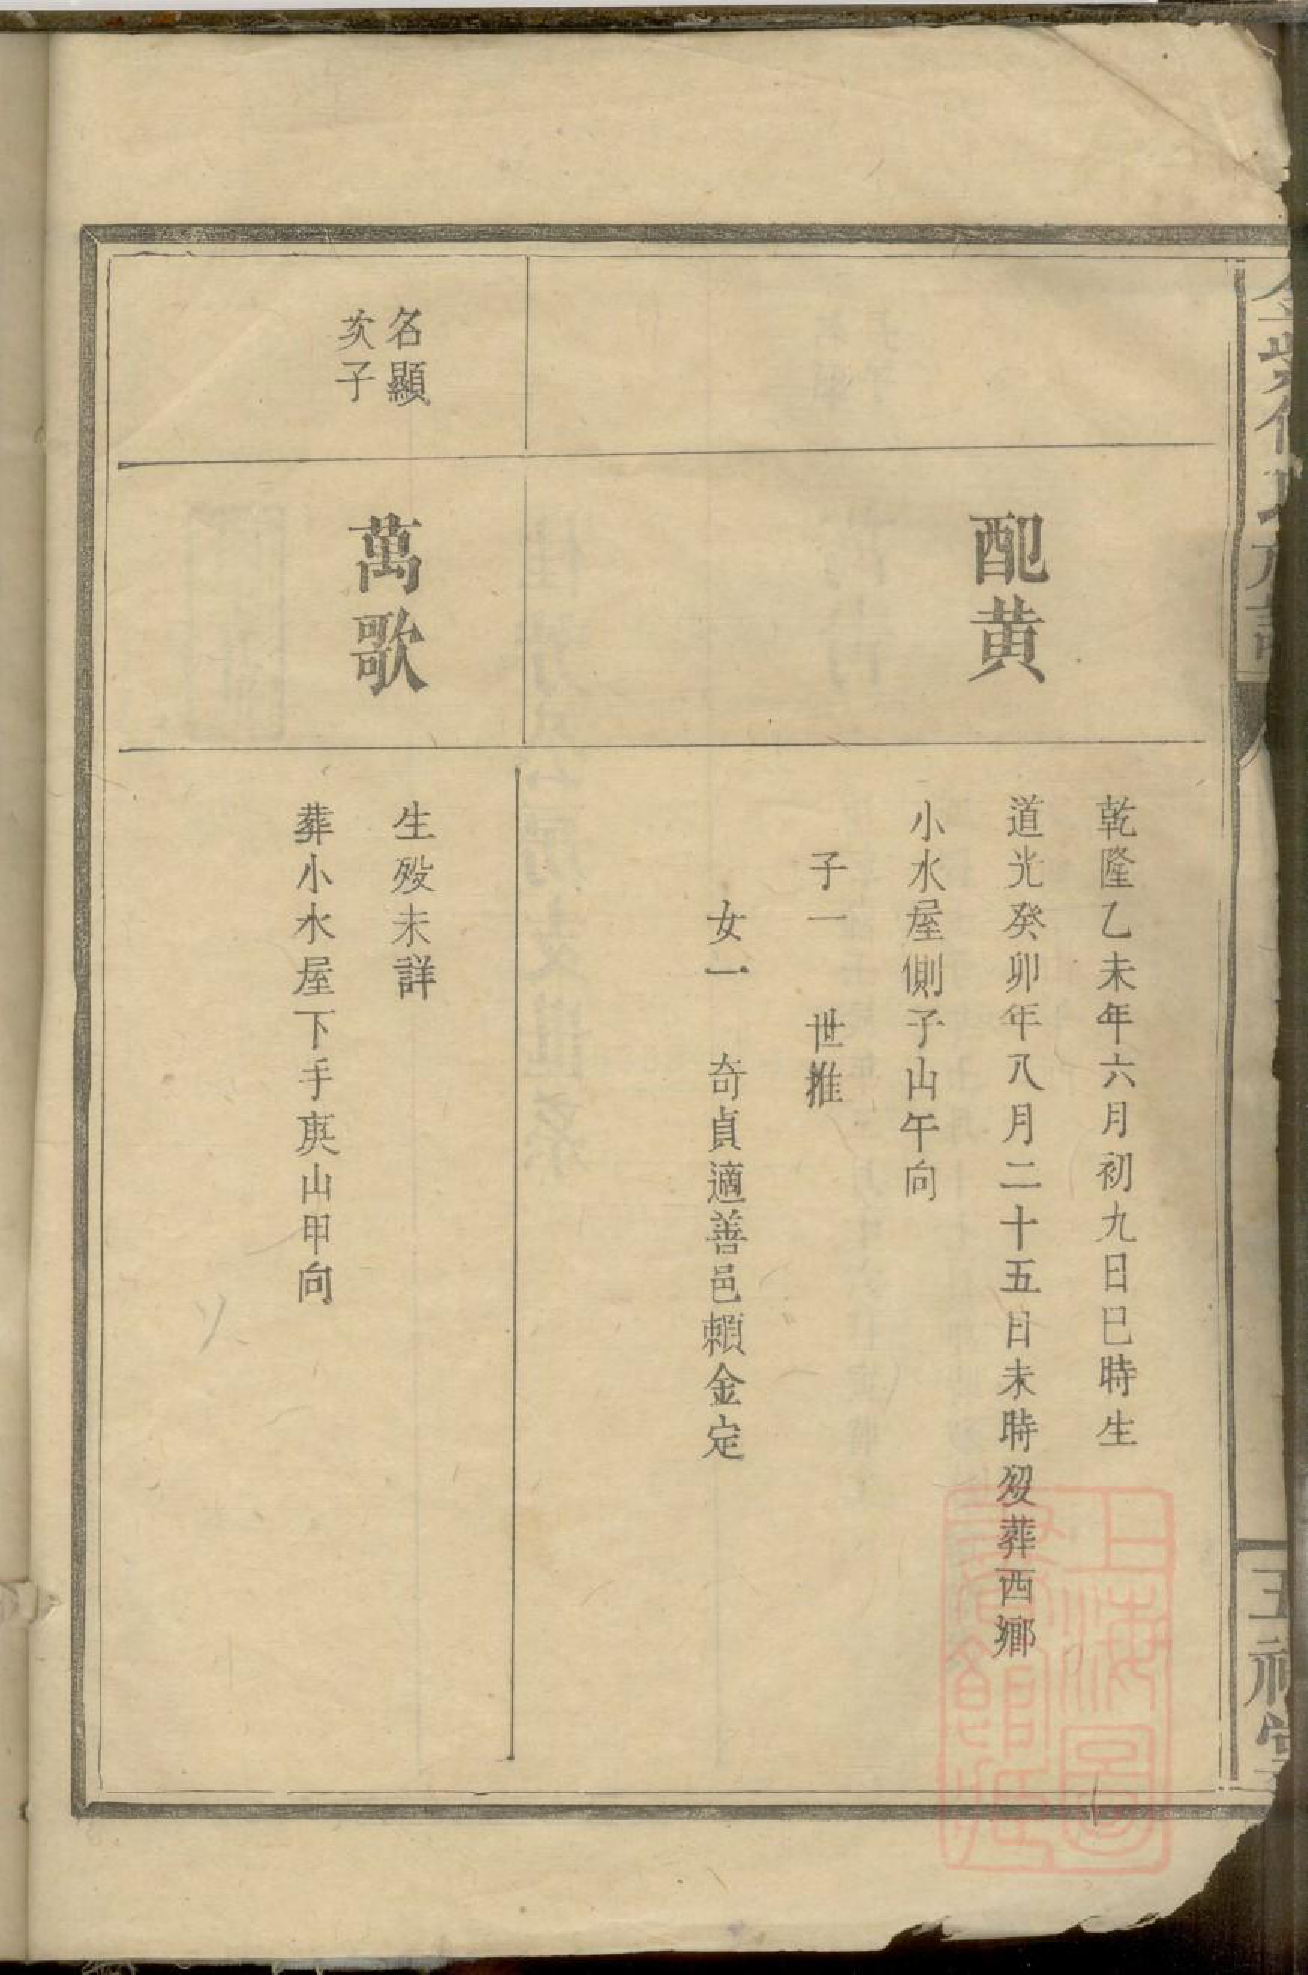 配黄
乾隆乙未年六月初九日巳時生
道光癸卯年八月二十五日未時歿葬西鄉
小水屋側子山午向
子一　世推
女一　奇貞適善邑賴金定
名顯
次子
萬歌
生歿未詳
葬小水屋下手庚山甲向
上海圖
書館藏